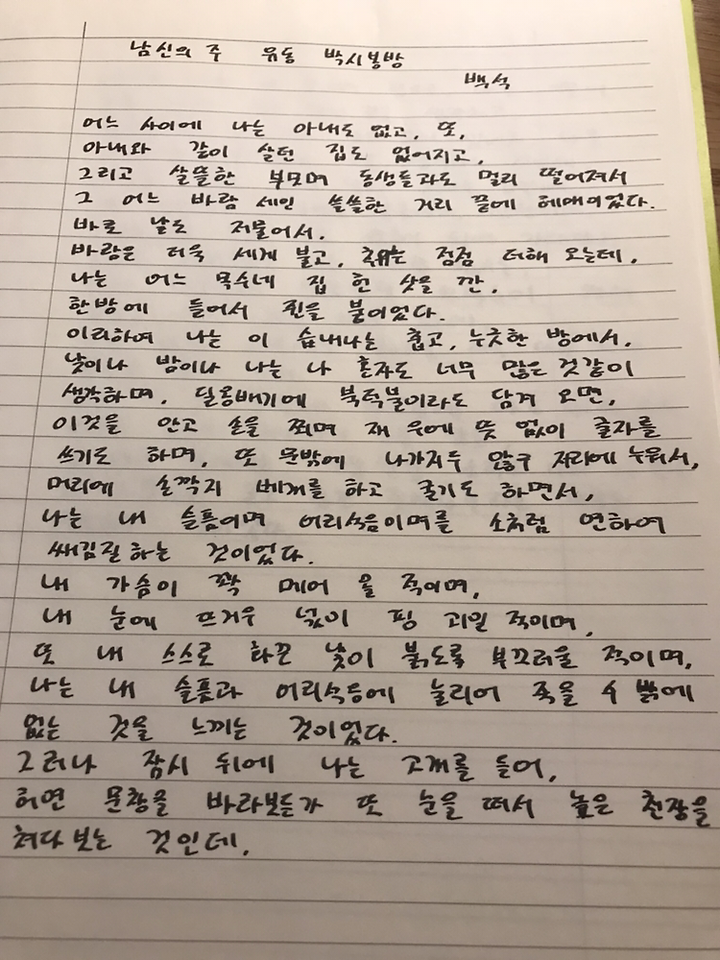 남신의주 유동 박시봉방
백석
어느 사이에 나는 아내도 없고, 또,
아내와 같이 살던 집도 없어지고,
그리고 살뜰한 부모며 동생들과도 멀리 떨어져서
그 어느 바람 세인 쓸쓸한 거리 끝에 헤매이었다.
바로 날도 저물어서.
바람은 더욱 세게 불고, 추위는 점점 더해 오는데,
나는 어느 목수네 집 헌 삿을 깐,
한방에 들어서 쥔을 붙이었다.
이리하여 나는 이 습내나는 춥고, 누긋한 방에서.
낮이나 밤이나 나는 나 혼자도 너무 많은 것같이
생각하며, 딜옹배기에 북덕불이라도 담겨 오면,
이것을 안고 손을 쬐며 재 우에 뜻 없이 글자를
쓰기도 하며, 또 문밖에 나가지두 않구 자리에 누워서,
머리에 손깍지 베개를 하고 굴기도 하면서,
나는 내 슬픔이며 어리석음이며를 소처럼 연하여
쌔김질하는 것이었다.
내 가슴이 꽉 메어 올 적이며,
내 눈에 뜨거우 것이 핑 괴일 적이며,
또 내 스스로 화끈 낯이 붉도록 부끄러울 적이며,
나는 내 슬픔과 어리석음에 눌리어 죽을 수 밖에
없는 것을 느끼는 것이었다.
그러나 잠시 뒤에 나는 고개를 들어,
허연 문창을 바라보든가 또 눈을 떠서 높은 천장을
쳐다보는 것인데,